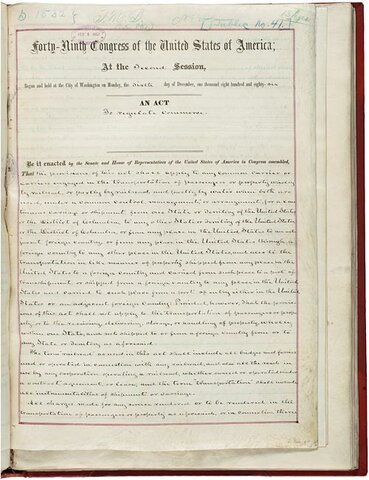 [Public No. 41.]
Forty-Ninth Congress of the United States of America;
At the Second Session,
Begun and held at the City of Washington on Monday, the sixth day of December, one thousand eight hundred and eighty-six
AN ACT
To regulate commerce.
Be it enacted by the Senate and House of Representatives of the United States of America in Congress assembled,
That the provisions of this act shall apply to any common carrier or
carriers engaged in the transportation of passengers or property wholly
by railroad, or partly by railroad and partly by water when both are
used, under a common control, management, or arrangement, for a con-
tinuous carriage or shipment, from one State or Territory of the United States,
or the District of Columbia, to any other State or Territory of the United States,
or the District of Columbia, or from any place in the United States to an ad-
jacent foreign country, or from any place in the United States through a
foreign country to any other place in the United States, and also to the
transportation in like manner of property shipped from any place in the
United States to a foreign country and carried from such place to a port of
transshipment, or shipped from a foreign country to any place in the United
States and carried to such place from a port of entry either in the United
States or an adjacent foreign country: Provided, however, That the provisions
of this act shall not apply to the transportation of passengers or prop-
erty, or to the receiving, delivering, storage, or handling of property, wholly
within one State, and not shipped to or from a foreign country from or to
any State or Territory as aforesaid.
The term "railroad" as used in this act shall include all bridges and ferries
used or operated in connection with any railroad, and also all the road in
use by any corporation operating a railroad, whether owned or operated under
a contract, agreement, or lease; and the term "transportation" shall include
all instrumentalities of shipment or carriage.
All charges made for any service rendered or to be rendered in the
transportation of passengers or property as aforesaid, or in connection there